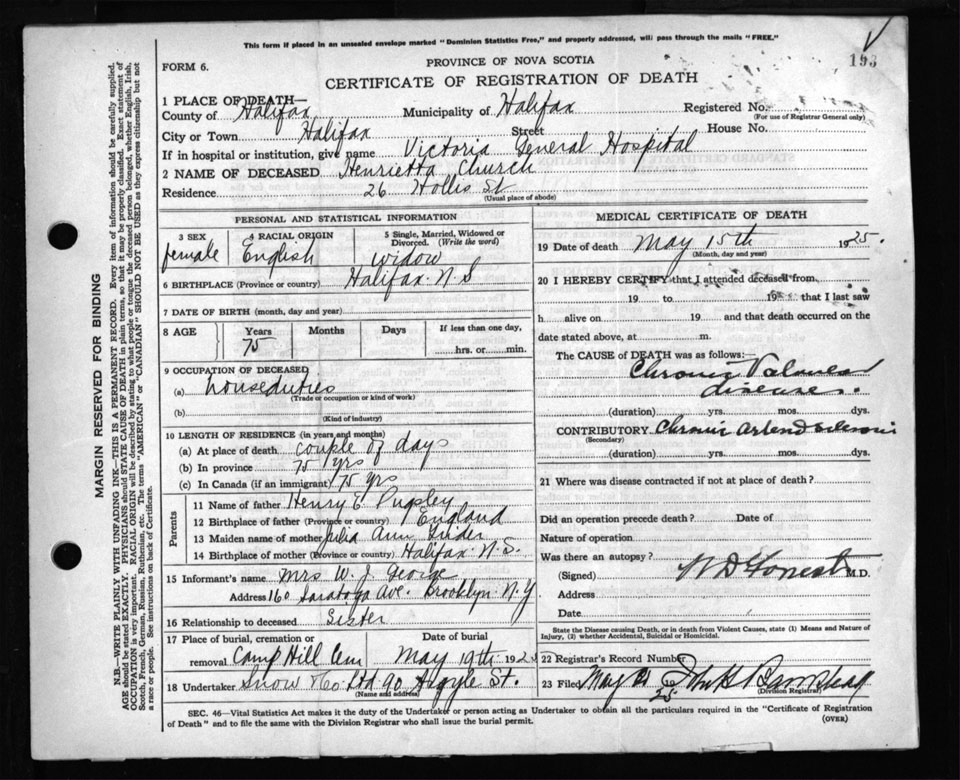 This form if placed in an unsealed envelope marked "Dominion Statistics Free," and properly addressed, will pass through the mails "FREE."
193
FORM 6.
PROVINCE OF NOVA SCOTIA
CERTIFICATE OF REGISTRATION OF DEATH
1 PLACE OF DEATH—
County of Halifax Municipality of Halifax Registered No.
(For use of Registrar General only)
City or Town Halifax Street House No.
If in hospital or institution, give name Victoria General Hospital
2 NAME OF DECEASED Henrietta Church
Residence 26 Hollis St
(Usual place of abode)
PERSONAL AND STATISTICAL INFORMATION
3 SEX 4 RACIAL ORIGIN 5 Single, Married, Widowed or Divorced. (Write the word)
female English widow
6 BIRTHPLACE (Province or country) Halifax. N. S
7 DATE OF BIRTH (month, day and year)
8 AGE Years Months Days If less than one day,
75 hrs. or min.
9 OCCUPATION OF DECEASED
(a) houseduties
(Trade or occupation or kind of work)
(b)
(Kind of industry)
10 LENGTH OF RESIDENCE (in years and months)
(a) At place of death couple of days
(b) In province 75 yrs
(c) In Canada (if an immigrant) 75 yrs
Parents
11 Name of father Henry E. Pugsley
12 Birthplace of father (Province or country) England
13 Maiden name of mother Julia Ann
14 Birthplace of mother (Province or country) Halifax. N. S.
15 Informant's name Mrs W. J. George
Address 160 Saratoga Ave. Brooklyn. N. Y
16 Relationship to deceased Sister
17 Place of burial, cremation or Date of burial
removal Camp Hill Cem May 19th 1925
18 Undertaker Snow & Co. Ltd 90 Argyle St.
(Name and address)
MEDICAL CERTIFICATE OF DEATH
19 Date of death May 15th 1925.
(Month, day and year)
20 I HEREBY CERTIFY that I attended deceased from
19 to 19 that I last saw
h alive on 19 and that death occurred on the
date stated above, at m.
The CAUSE of DEATH was as follows:—
Chronic Valvular
disease.
(duration) yrs. mos. dys.
CONTRIBUTORY Chronic
(Secondary)
(duration) yrs. mos. dys.
21 Where was disease contracted if not at place of death?
Did an operation precede death? Date of
Nature of operation
Was there an autopsy?
(Signed) M.D.
Address
Date
State the Disease causing Death, or in death from Violent Causes, state (1) Means and Nature of
Injury, (2) whether Accidental, Suicidal or Homicidal.
22 Registrar's Record Number
23 Filed May 25 John H Barnstead
(Division Registrar)
SEC. 46—Vital Statistics Act makes it the duty of the Undertaker or person acting as Undertaker to obtain all the particulars required in the "Certificate of Registration
of Death" and to file the same with the Division Registrar who shall issue the burial permit.
(OVER)
MARGIN RESERVED FOR BINDING
N.B.—WRITE PLAINLY WITH UNFADING INK—THIS IS A PERMANENT RECORD. Every item of information should be carefully supplied.
AGE should be stated EXACTLY. PHYSICIANS should STATE CAUSE OF DEATH in plain terms, so that it may be properly classified. Exact statement of
OCCUPATION is very important. RACIAL ORIGIN will be described by stating to what people or tongue the deceased person belonged, whether English, Irish,
Scotch, French, German, Russian, Ruthenian, etc. The terms "AMERICAN" or "CANADIAN" SHOULD NOT BE USED as they express citizenship but not
a race or people. See instructions on back of Certificate.